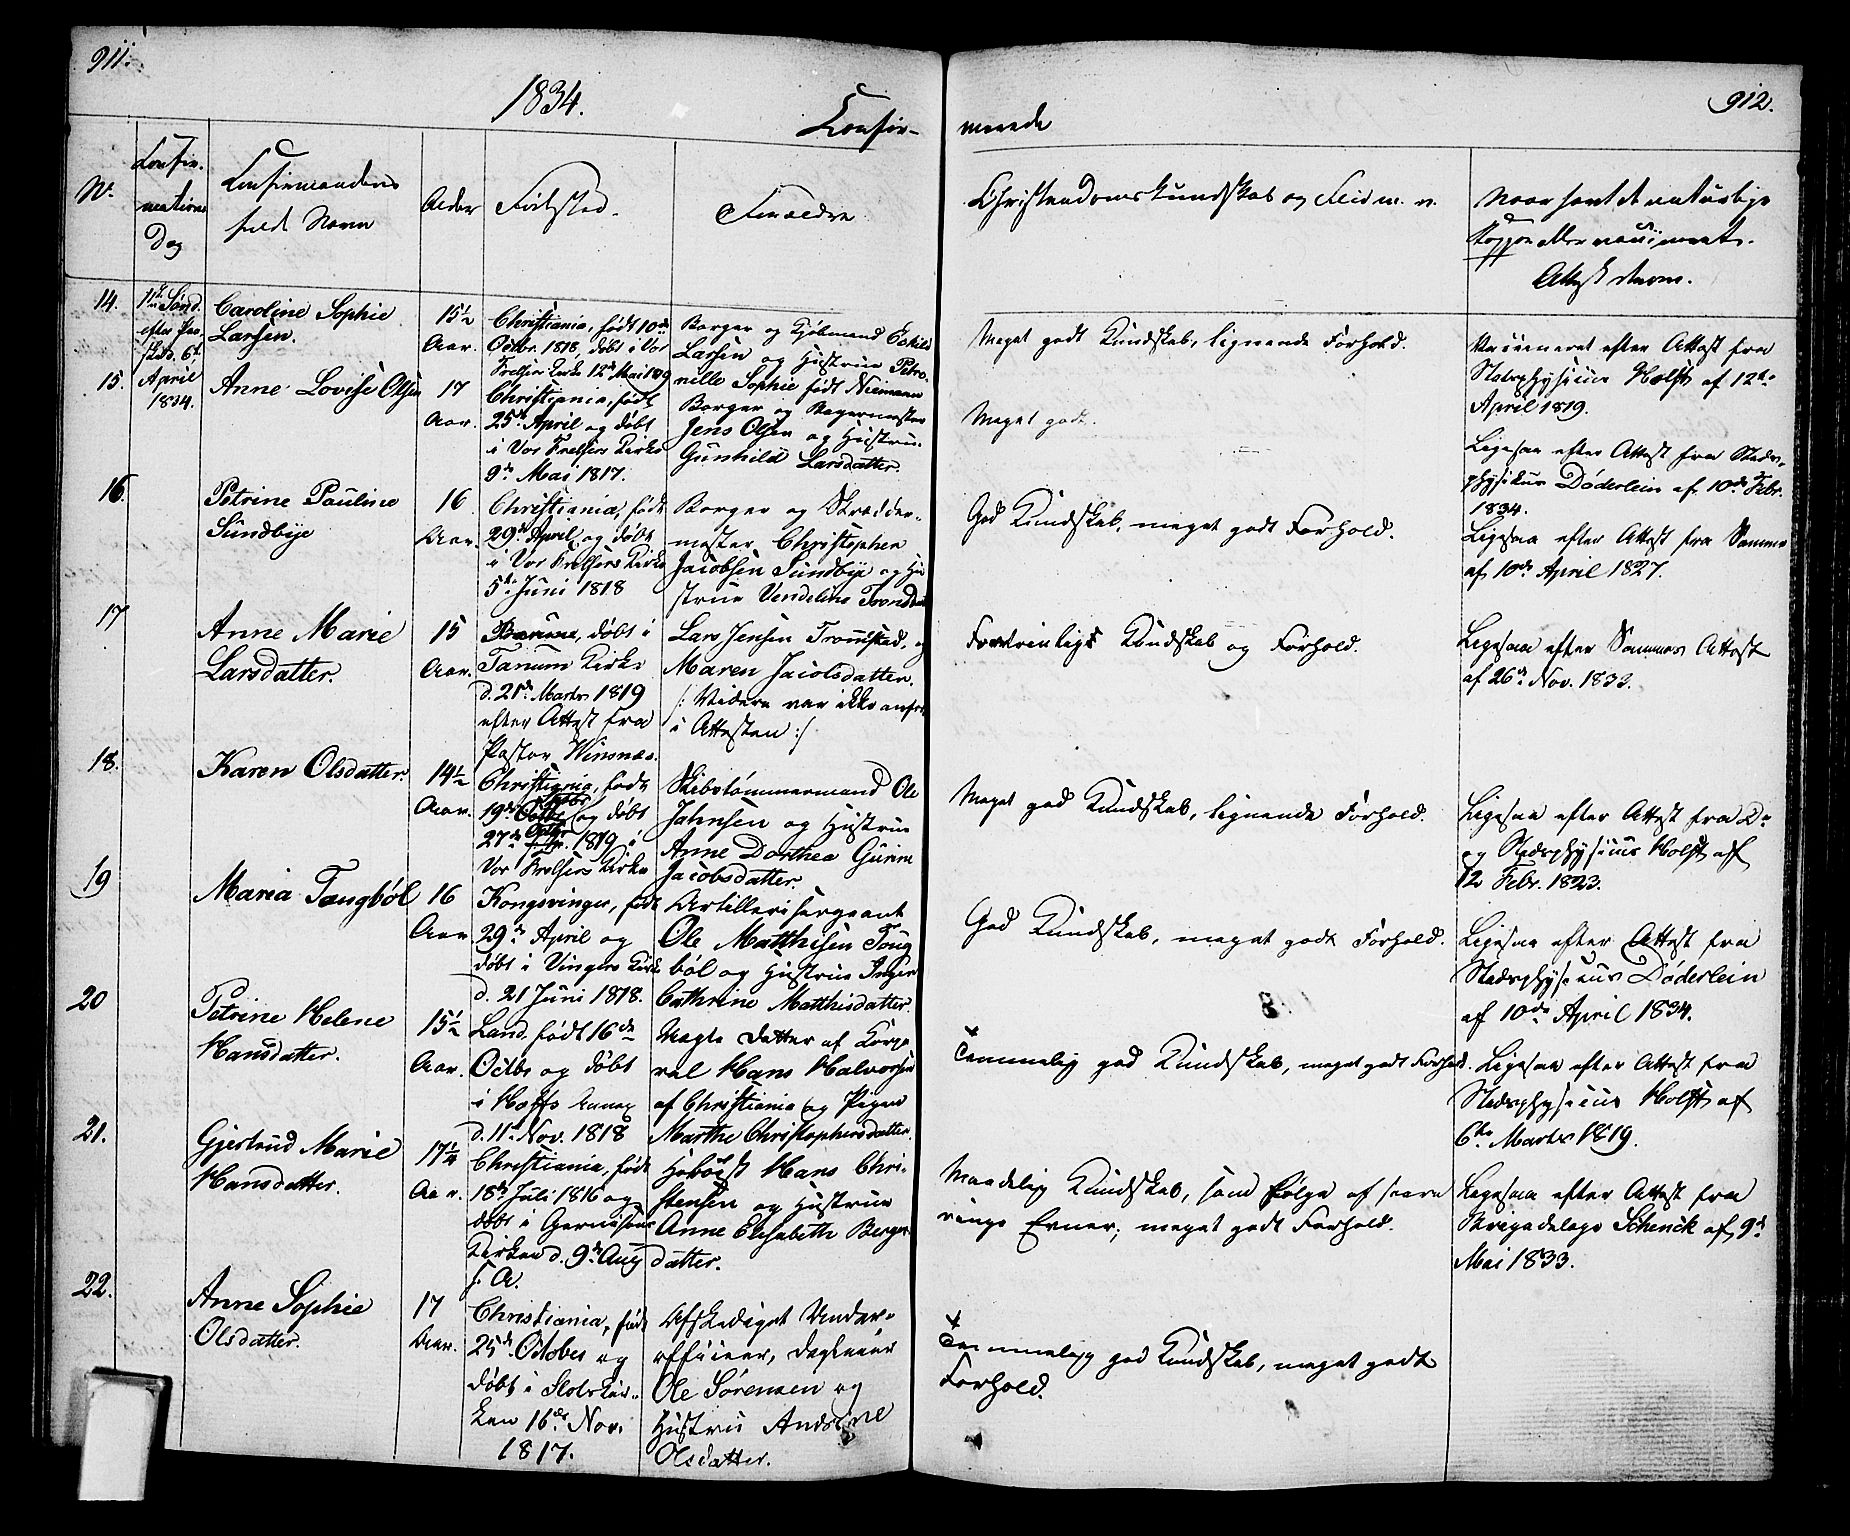 911.
1834.
Confir-
No.
Confir-
mations
Dag
Confirmandens
fulde Navn
Alder
Fødested.
Forældre
14.
11te Sønd.
efter
6te
April
1834.
Caroline Sophie
Larsen.
15½
Aar.
Christiania, født 10de
Octbr. 1818, døbt i Vor
Frelsers Kirke 12te Mai 1819
Borger og Kjøbmand Eskild
Larsen og Hustrue Petro-
nille Sophie født Niemann
15.
Anne Lovise Olsen
17
Aar.
Christiania, født
25de April og døbt
i Vor Frelsers Kirke
9de Mai 1817.
Borger og Bagermester
Jens Olsen og Hustrue
Gunhild Larsdatter.
16.
Petrine Pauline
Sundbye
16
Aar.
Christiania, født
29de April og døbt
i Vor Frelsers Kirke
5te Juni 1818
Borger og Skrædder-
mester Christopher
Jacobsen Sundbye og Hu
strue Vendeline
17
Anne Marie
Larsdatter.
15
Aar.
Bærum, døbt i
Tanum Kirke
d. 21de Marts 1819
efter Attest fra
Pastor Winsnes.
Lars Jensen Tromstad, og
Maren Jacobsdatter.
/: Videre var ikke anført
i Attesten :/
18.
Karen Olsdatter.
14½
Aar.
Christiania, født
19de og døbt
27de Octbr 1819 i
Vor Frelsers Kirke
Skibstømmermand Ole
Jahnsen og Hustrue
Anne Dorthea Gurine
Jacobsdatter.
19
Maria Tangbøl
16
Aar
Kongsvinger, født
29de April og
døbt i Vingers Kirke
d. 21 Juni 1818.
Artillerisergeant
Ole Matthisen Tang
bøl og Hustrue Inger
Cathrine Matthisdatter.
20
Petrine Helene
Hansdatter.
15½
Aar.
Land, født 16de
Octbr og døbt
i Hoffs Annex
d. 11te Nov. 1818
Uægte Datter af Corpo
ral Hans Halvorsen
af Christiania og Pigen
Marthe Christophersdatter.
21.
Gjertrud Marie
Hansdatter.
17¼
Aar.
Christiania, født
18de Juli 1816 og
døbt i Garnisons
Kirken d. 9de Aug
s. A.
Hoboist Hans Chri-
stensen og Hustrue
Anne Elisabeth Berger
datter.
22.
Anne Sophie
Olsdatter.
17
Aar.
Christiania, født
25de October og
døbt i Slotskir-
ken 16de Nov.
1817.
Afskediget Under-
officier, Dagleier
Ole Sørensen og
Hustru Andrine
Olsdatter.
912.
merede
Christendomskundskab og Flid m. v.
Naar havt de naturlige
Kopper eller vaccineret.
Attest derom.
Meget godt Kundskab, lignende Forhold.
Vaccineret efter Attest fra
Stadsphysicus Holst af 12te
April 1819.
Meget godt.
Ligesaa efter Attest fra Stads-
physikus Døderlein af 10de Febr.
1834.
God Kundskab, meget godt Forhold.
Ligesaa efter Attest fra Samme
af 10de April 1827.
Fortrinligt Kundskab og Forhold.
Ligesaa efter Sammes Attest
af 26de Nov. 1833.
Meget god Kundskab, lignende Forhold.
Ligesaa efter Attest fra
og Stadsphysicus Holst af
12 Febr. 1823.
God Kundskab, meget godt Forhold.
Ligesaa efter Attest fra
Stadsphysicus Døderlein
af 10de April 1834.
Temmelig god Kundskab, meget godt Forhold.
Ligesaa efter Attest fra
Stadsphysicus Holst af
6te Marts 1819.
Maadelig Kundskab, som Følge af
ringe Evner; meget godt Forhold.
Ligesaa efter Attest fra
Brigadelæge Schenck af 9de
Mai 1833.
Temmelig god Kundskab, meget godt
Forhold.